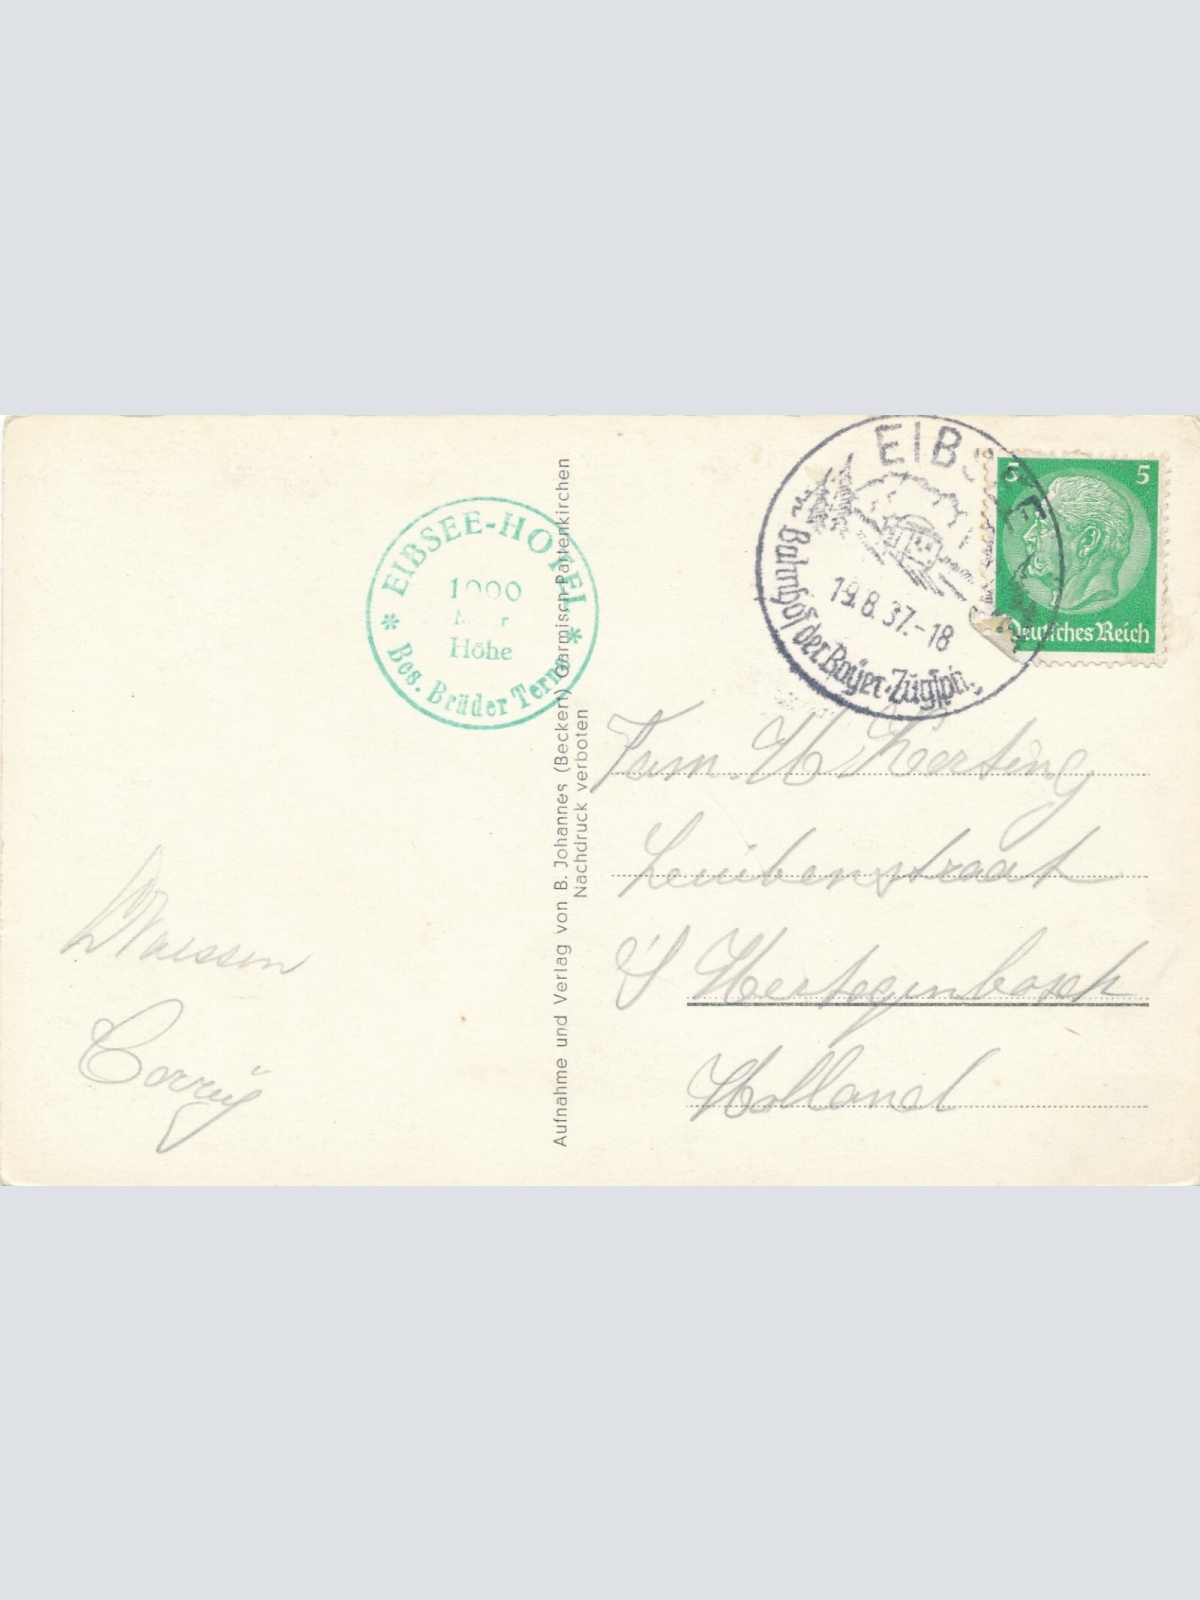 EIBSEE-HOTEL
1000
Meter
Höhe
* Bes. Brüder Terne *
Aufnahme und Verlag von B. Johannes (Beckert) Garmisch-Partenkirchen
Nachdruck verboten
EIBSEE
19.8.37.-18
Bahnhof der Bayer. Zugsp.
5 5
Deutsches Reich
Fam. H Kersting
straat
's Hertogenbosch
Holland
Corry